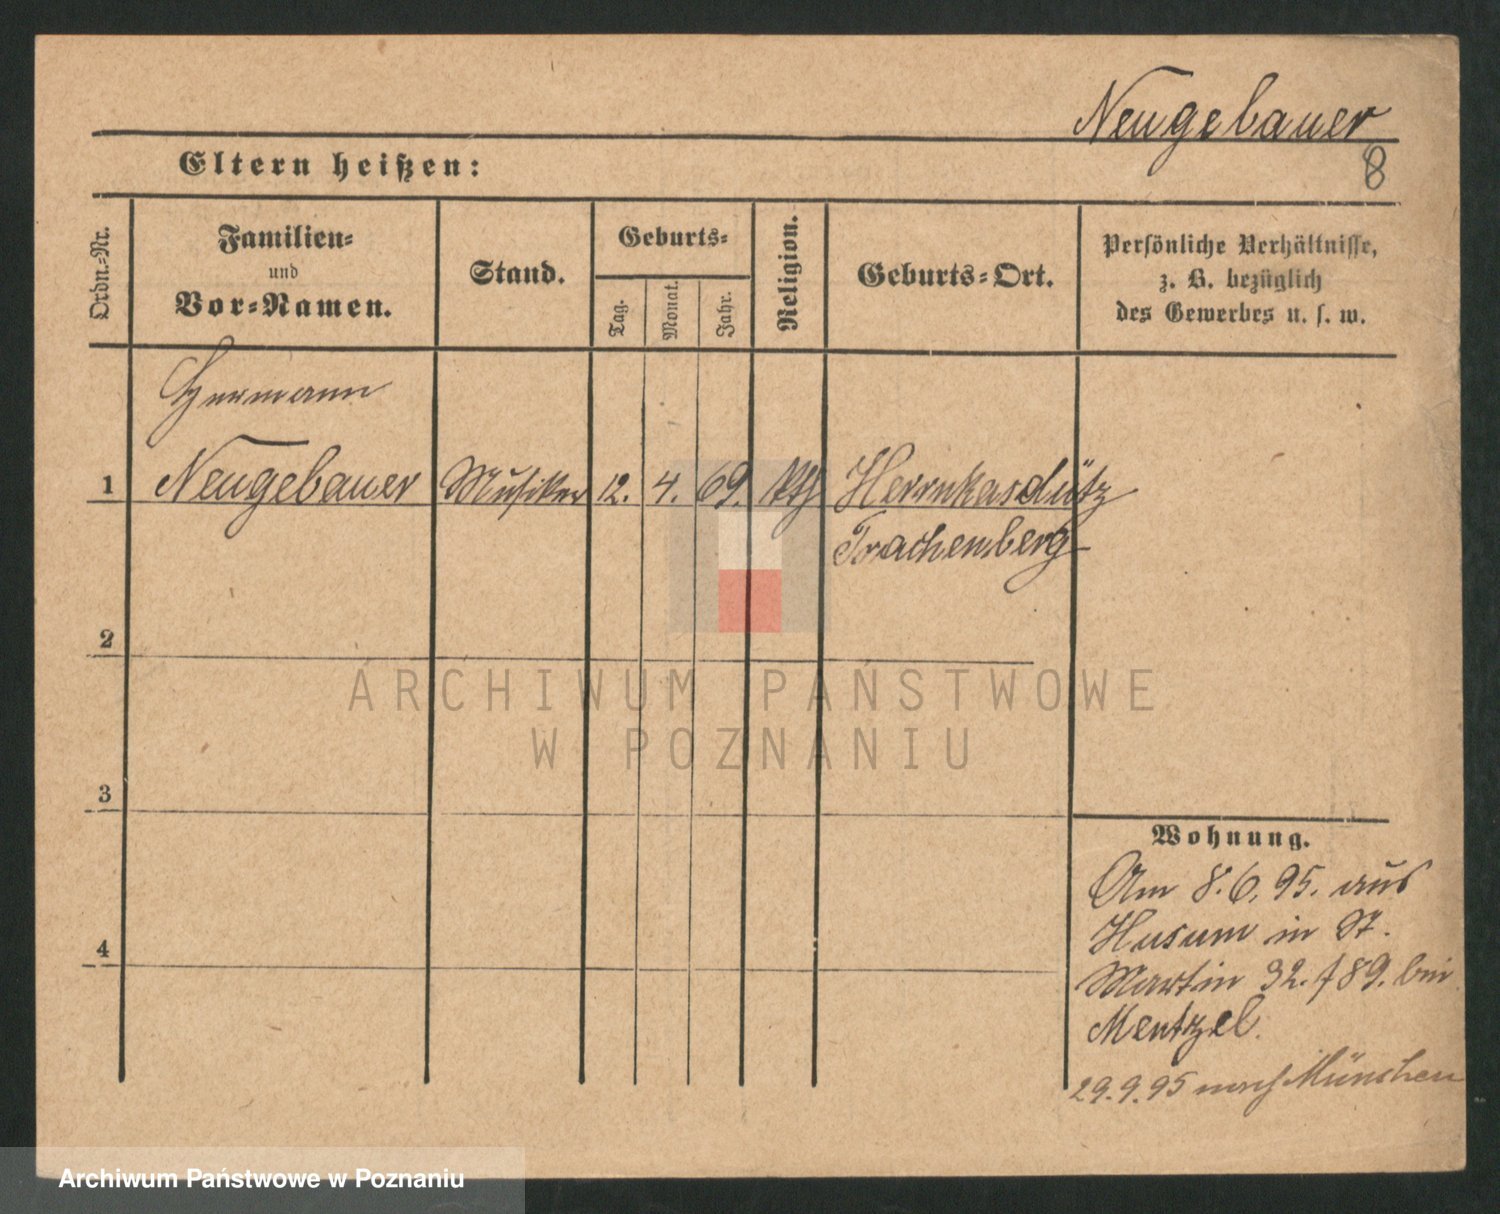 Neugebauer
8
Eltern heißen:
Ordn.-Nr.
Familien-
und
Vor-Namen.
Stand.
Geburts-
Tag.
Monat.
Jahr.
Religion.
Geburts-Ort.
Persönliche Verhältnisse,
z. B. bezüglich
des Gewerbes u. s. w.
Hermann
1 Neugebauer Musiker 12. 4. 69. kth
Trachemberg
2
3
4
ARCHIWUM PAŃSTWOWE
W POZNANIU
Wohnung.
Am 8.6.95. aus
Husum in St.
Martin 32. 89. bei
Mentzel.
29.9.95 nach München
Archiwum Państwowe w Poznaniu